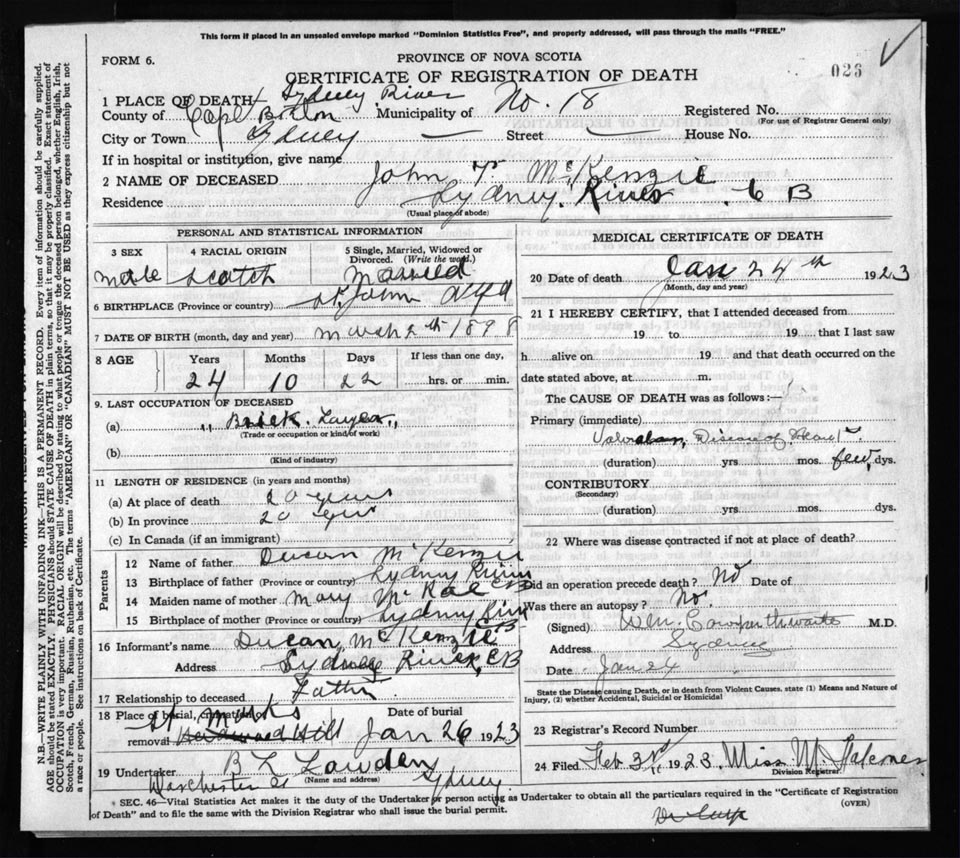 This form if placed in an unsealed envelope marked "Dominion Statistics Free", and properly addressed, will pass through the mails "FREE."
FORM 6.
PROVINCE OF NOVA SCOTIA
026
CERTIFICATE OF REGISTRATION OF DEATH
1 PLACE OF DEATH Sydney River
County of Cape Breton Municipality of No. 18 Registered No.
(For use of Registrar General only)
City or Town Sydney Street — House No.
If in hospital or institution, give name
2 NAME OF DECEASED John T. McKenzie
Residence Sydney River C B
(Usual place of abode)
PERSONAL AND STATISTICAL INFORMATION
3 SEX 4 RACIAL ORIGIN 5 Single, Married, Widowed or Divorced. (Write the word.)
Male Scotch Married
6 BIRTHPLACE (Province or country) St. John Nfld
7 DATE OF BIRTH (month, day and year) March 2th 1898
8 AGE Years Months Days If less than one day,
24 10 22 hrs. or min.
9. LAST OCCUPATION OF DECEASED
(a) " Brick Layer "
(Trade or occupation or kind of work)
(b)
(Kind of industry)
11 LENGTH OF RESIDENCE (in years and months)
(a) At place of death 20 years
(b) In province 20 years
(c) In Canada (if an immigrant)
Parents
12 Name of father Ducan McKenzie
13 Birthplace of father (Province or country) Sydney River
14 Maiden name of mother Mary McRae CB
15 Birthplace of mother (Province or country) Sydney River
16 Informant's name Ducan McKenzie CB
Address Sydney River, CB
17 Relationship to deceased Father
18 Place of burial, cremation or removal St Marks Hardwood Hill
Date of burial Jan 26 1923
19 Undertaker B L Lowden
(Name and address)
Dorchester St Sydney
MEDICAL CERTIFICATE OF DEATH
20 Date of death Jan 24th 1923
(Month, day and year)
21 I HEREBY CERTIFY, that I attended deceased from
19 to 19 that I last saw
h alive on 19 and that death occurred on the
date stated above, at m.
The CAUSE OF DEATH was as follows:—
Primary (immediate)
Valvular Disease of Heart
(duration) yrs mos. few dys.
CONTRIBUTORY
(Secondary)
(duration) yrs. mos. dys.
22 Where was disease contracted if not at place of death?
Did an operation precede death? No Date of
Was there an autopsy? No.
(Signed) Wm. Cowperthwaite M.D.
Address Sydney
Date Jan 24
State the Disease causing Death, or in death from Violent Causes, state (1) Means and Nature of
Injury, (2) whether Accidental, Suicidal or Homicidal
23 Registrar's Record Number
24 Filed Feb 3rd 1923 Miss M. Falconer
Division Registrar
* SEC. 46—Vital Statistics Act makes it the duty of the Undertaker or person acting as Undertaker to obtain all the particulars required in the "Certificate of Registration
of Death" and to file the same with the Division Registrar who shall issue the burial permit.
(OVER)
N.B.—WRITE PLAINLY WITH UNFADING INK—THIS IS A PERMANENT RECORD. Every item of information should be carefully supplied.
AGE should be stated EXACTLY. PHYSICIANS should STATE CAUSE OF DEATH in plain terms, so that it may be properly classified. Exact statement of
OCCUPATION is very important. RACIAL ORIGIN will be described by stating to what people or tongue the deceased person belonged, whether English, Irish,
Scotch, French, German, Russian, Ruthenian, etc. The terms "AMERICAN" OR "CANADIAN" MUST NOT BE USED as they express citizenship but not
a race or people. See instructions on back of Certificate.